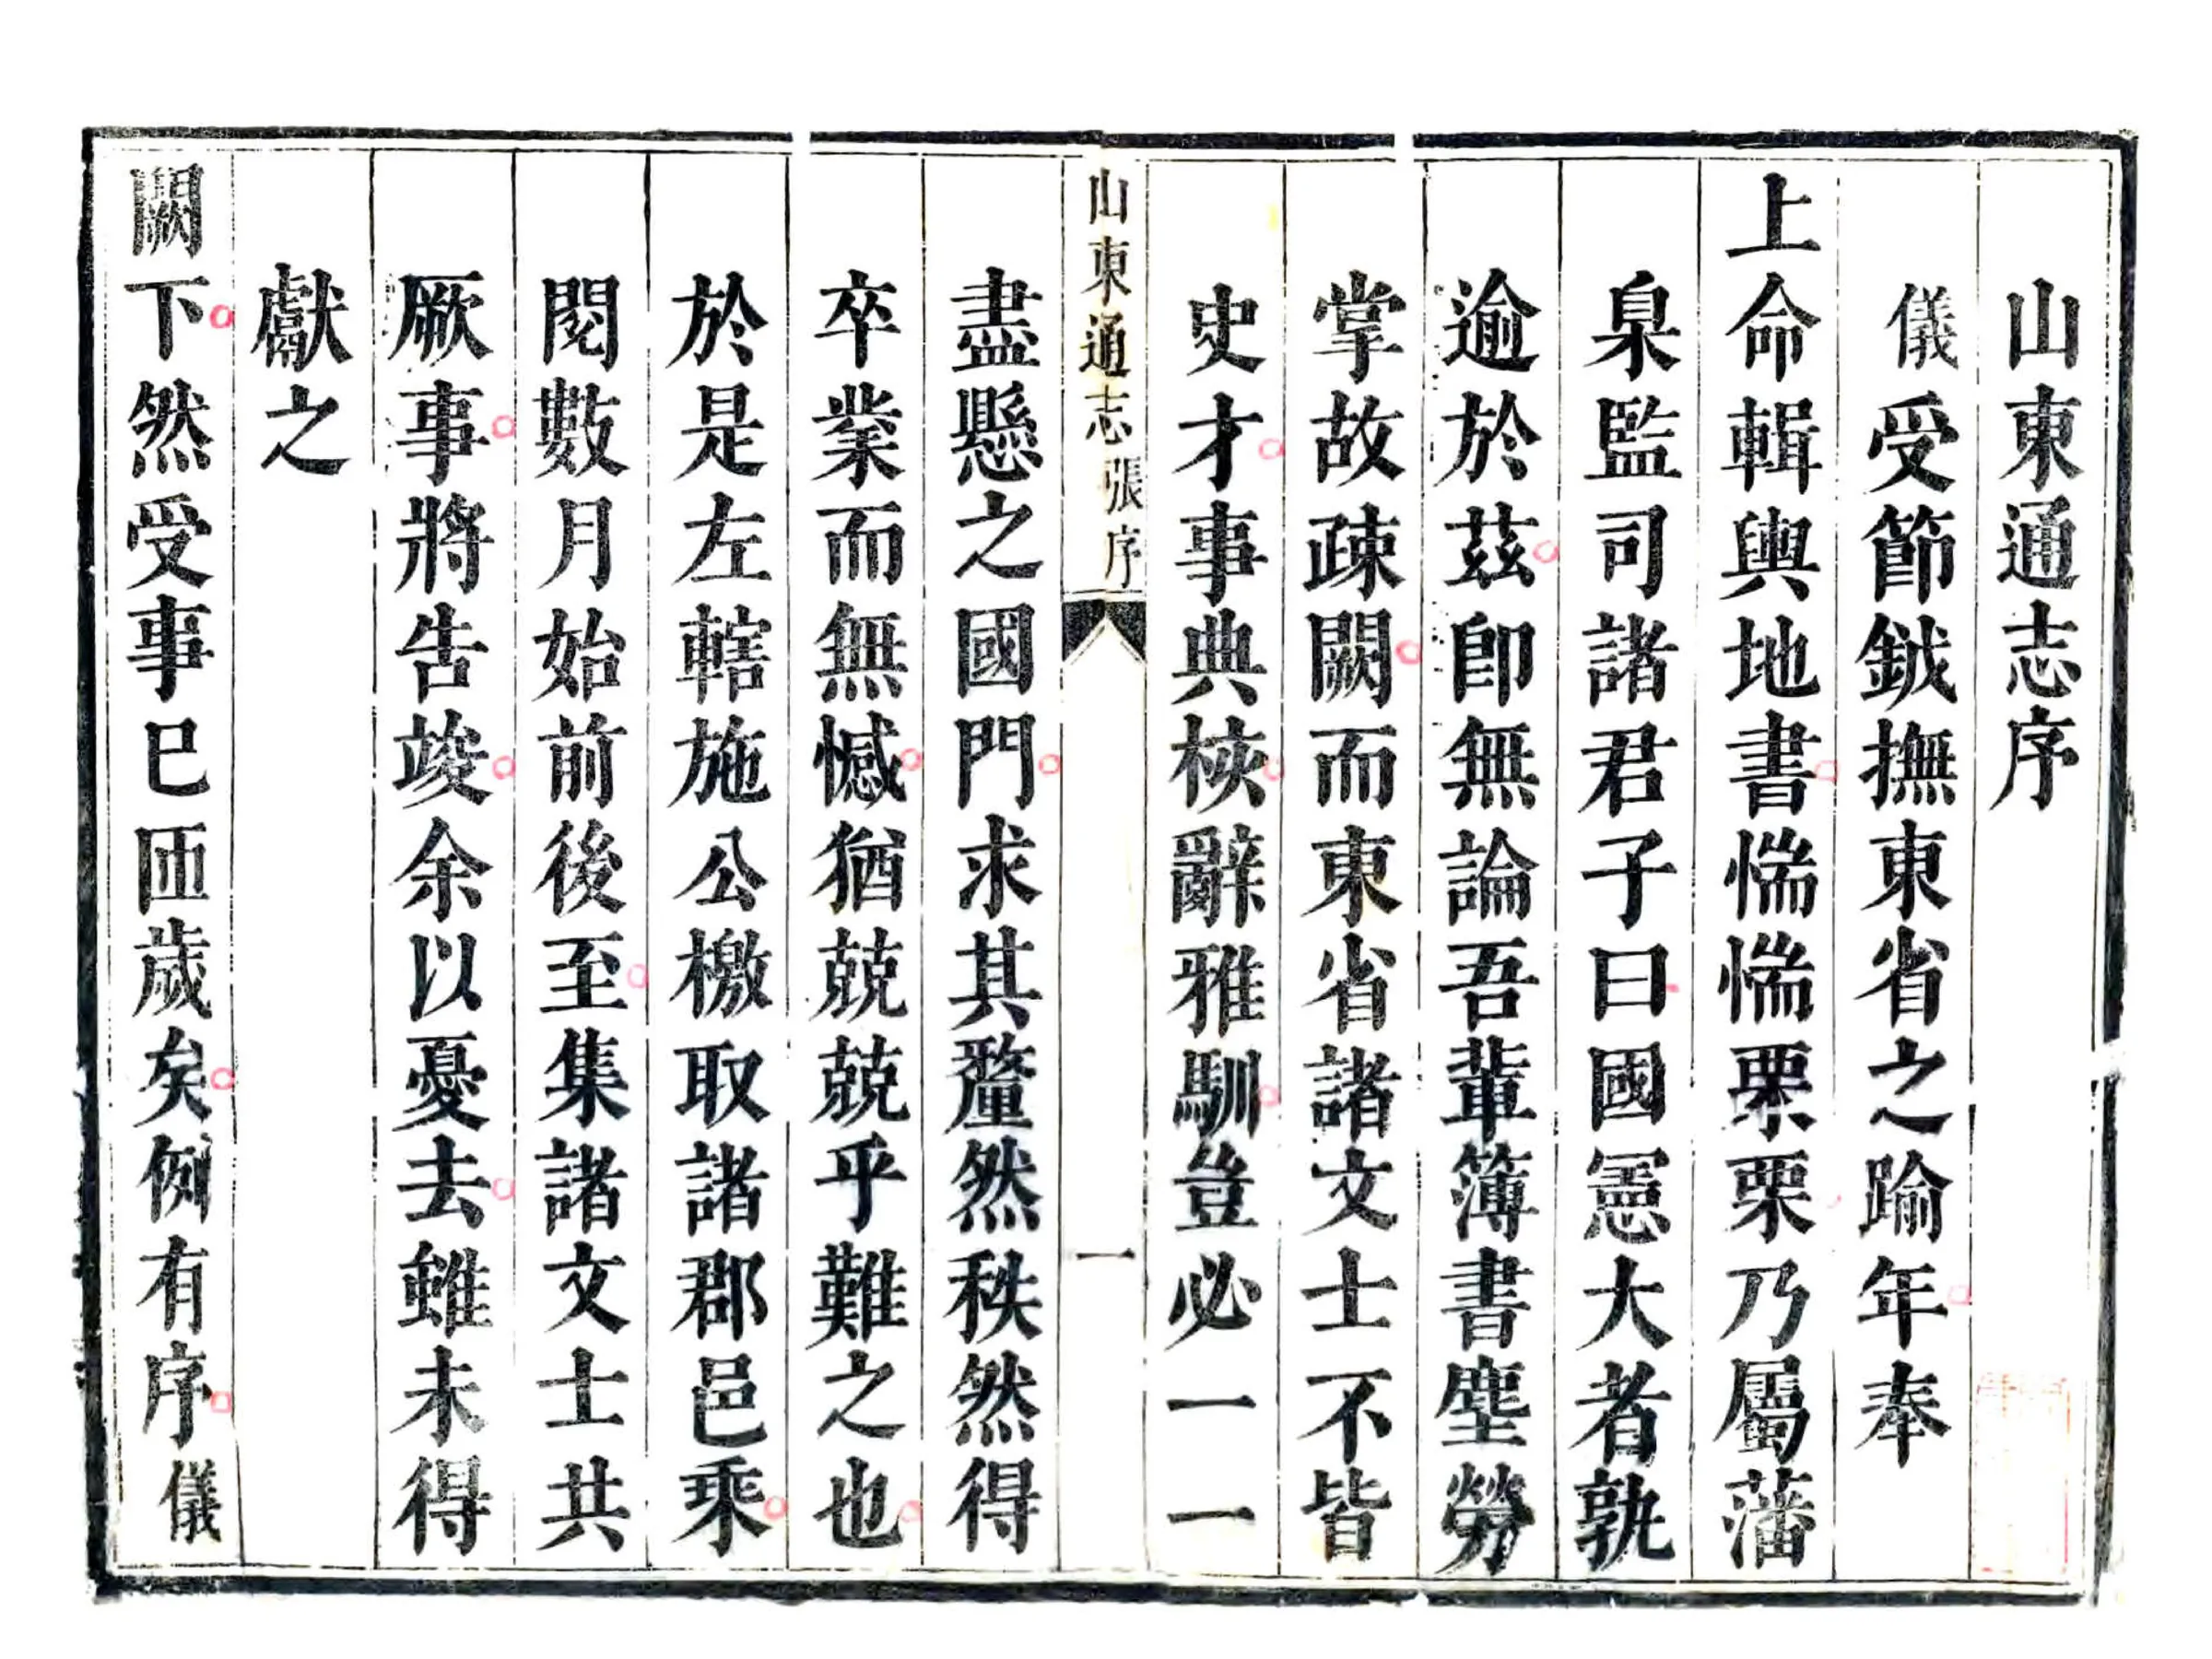 山東通志序
儀受節鉞撫東省之踰年奉
上命輯輿地書惴惴栗栗乃屬藩
臬監司諸君子曰國憲大者孰
逾於茲卽無論吾輩簿書塵勞
掌故疎闕而東省諸文士不皆
史才事典核辭雅馴豈必一一
山東通志 張序 一
盡懸之國門求其釐然秩然得
卒業而無憾猶兢兢乎難之也
於是左轄施公檄取諸郡邑乘
閱數月始前後至集諸文士共
厥事將告竣余以憂去雖未得
獻之
闕下然受事已匝歲矣例有序儀